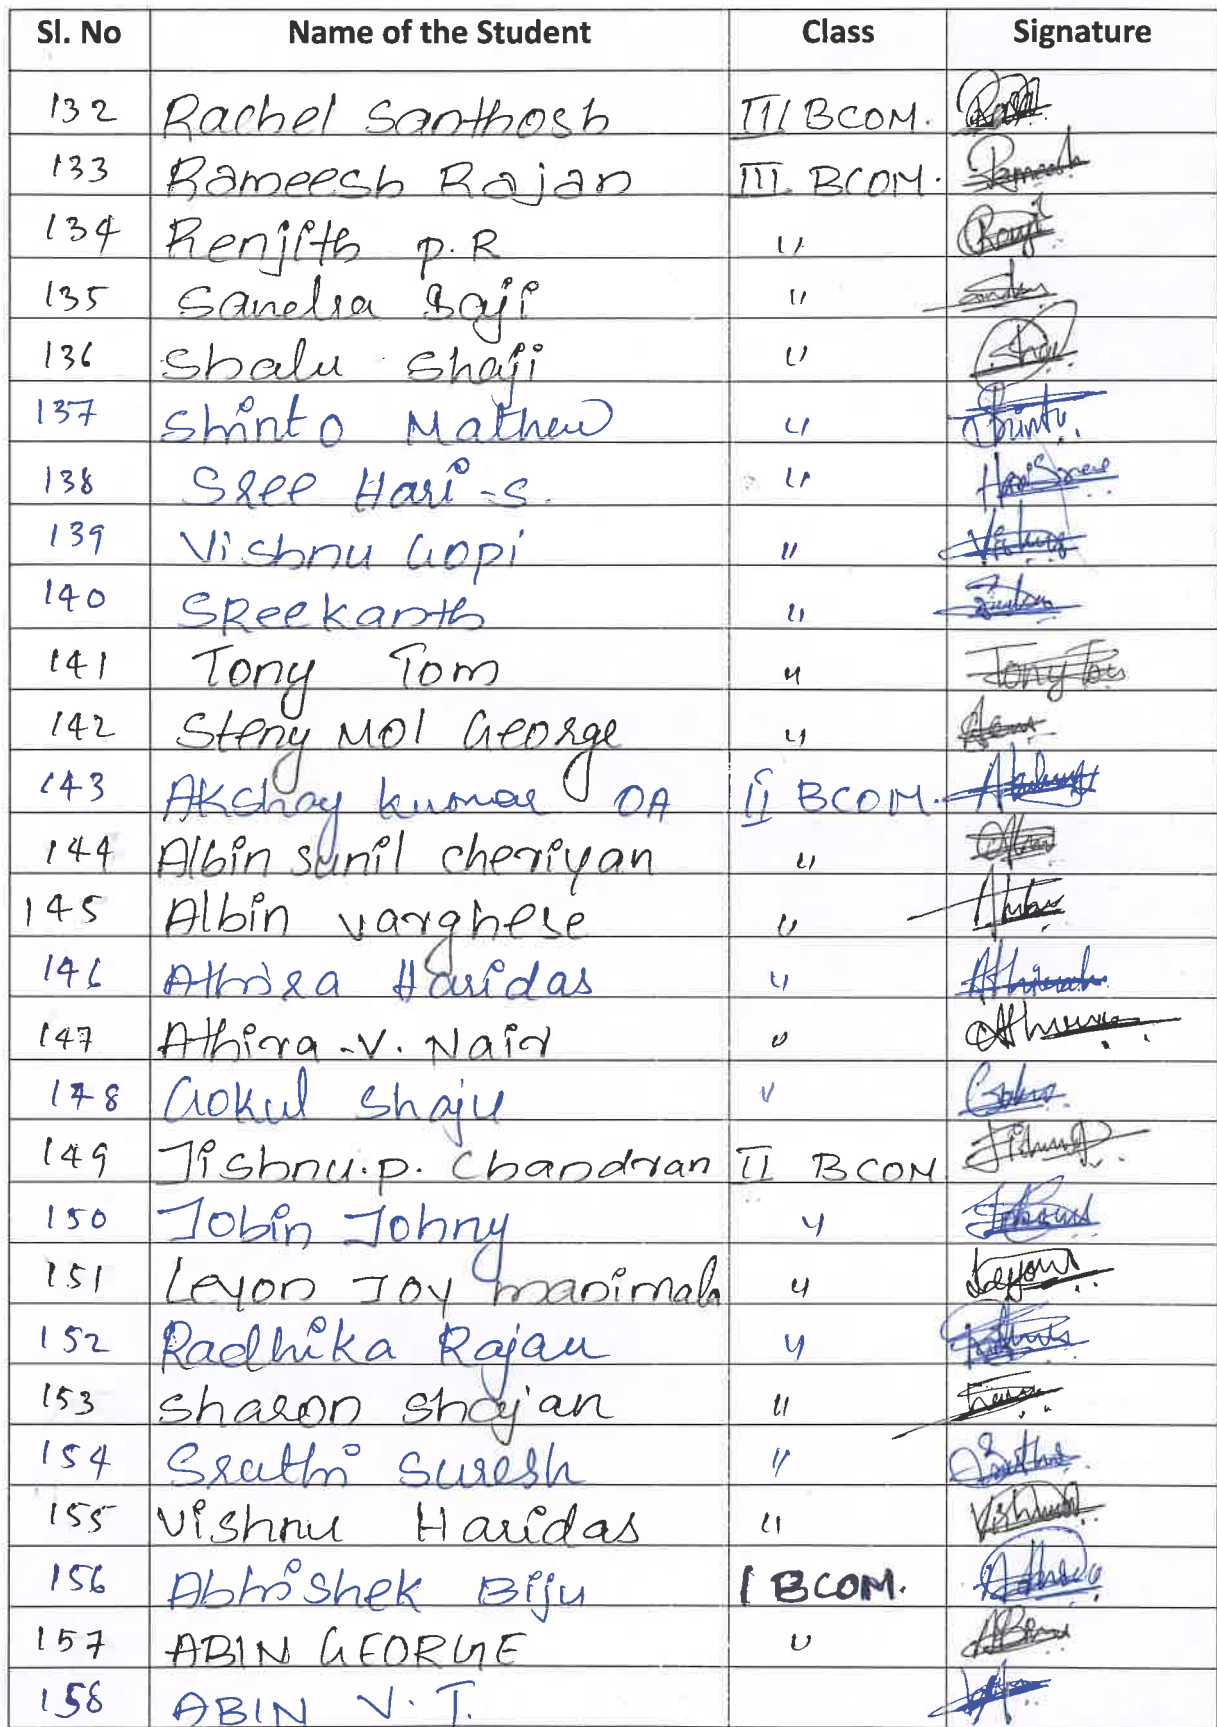 Sl. No Name of the Student Class Signature
132 Rachel Santhosh III BCOM.
133 Rameesh Rajan III BCOM.
134 Renjith p. R "
135 Sandra Saji "
136 Shalu Shaji "
137 Shinto Mathew " Shinto
138 Sree Hari - S. " HariSree
139 Vishnu Gopi " Vishnu
140 SReekanth "
141 Tony Tom " Tony Tom
142 Steny Mol George "
143 Akshay kumar OA II BCOM.
144 Albin sunil cheriyan "
145 Albin varghese "
146 Athira Haridas "
147 Athira - V. Nair "
148 Gokul Shaju "
149 Jishnu. p. Chandran II BCOM
150 Jobin Johny "
151 Leyon Joy manimala "
152 Radhika Rajan "
153 Sharon Shajan "
154 Sruthi Suresh "
155 Vishnu Haridas "
156 Abhishek Biju I BCOM.
157 ABIN GEORGE "
158 ABIN V. T.